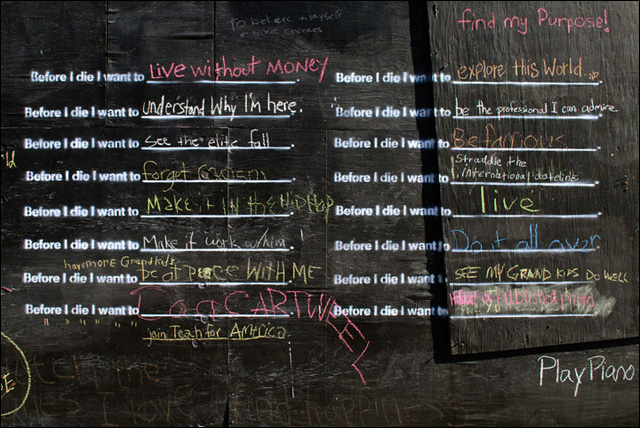 To believe in myself
find my Purpose!
Before I die I want to Live without MONEY
Before I die I want to understand Why I'm here.
Before I die I want to see the elite fall
Before I die I want to forget
Before I die I want to Make it IN the HIPHOP
Before I die I want to Make it work w/him!
have more Grandkids
Before I die I want to be at peace WITH ME
Before I die I want to Do a CARTWHEEL
" " " " " join Teach for America
Before I die I want to explore this World...
Before I die I want to be the professional I can admire.
Before I die I want to Be famous
Before I die I want to Straddle the
International dateline.
Before I die I want to live
Before I die I want to Do it all over
Before I die I want to SEE MY GRAND KIDS DO WELL
Before I die I want to
Play Piano